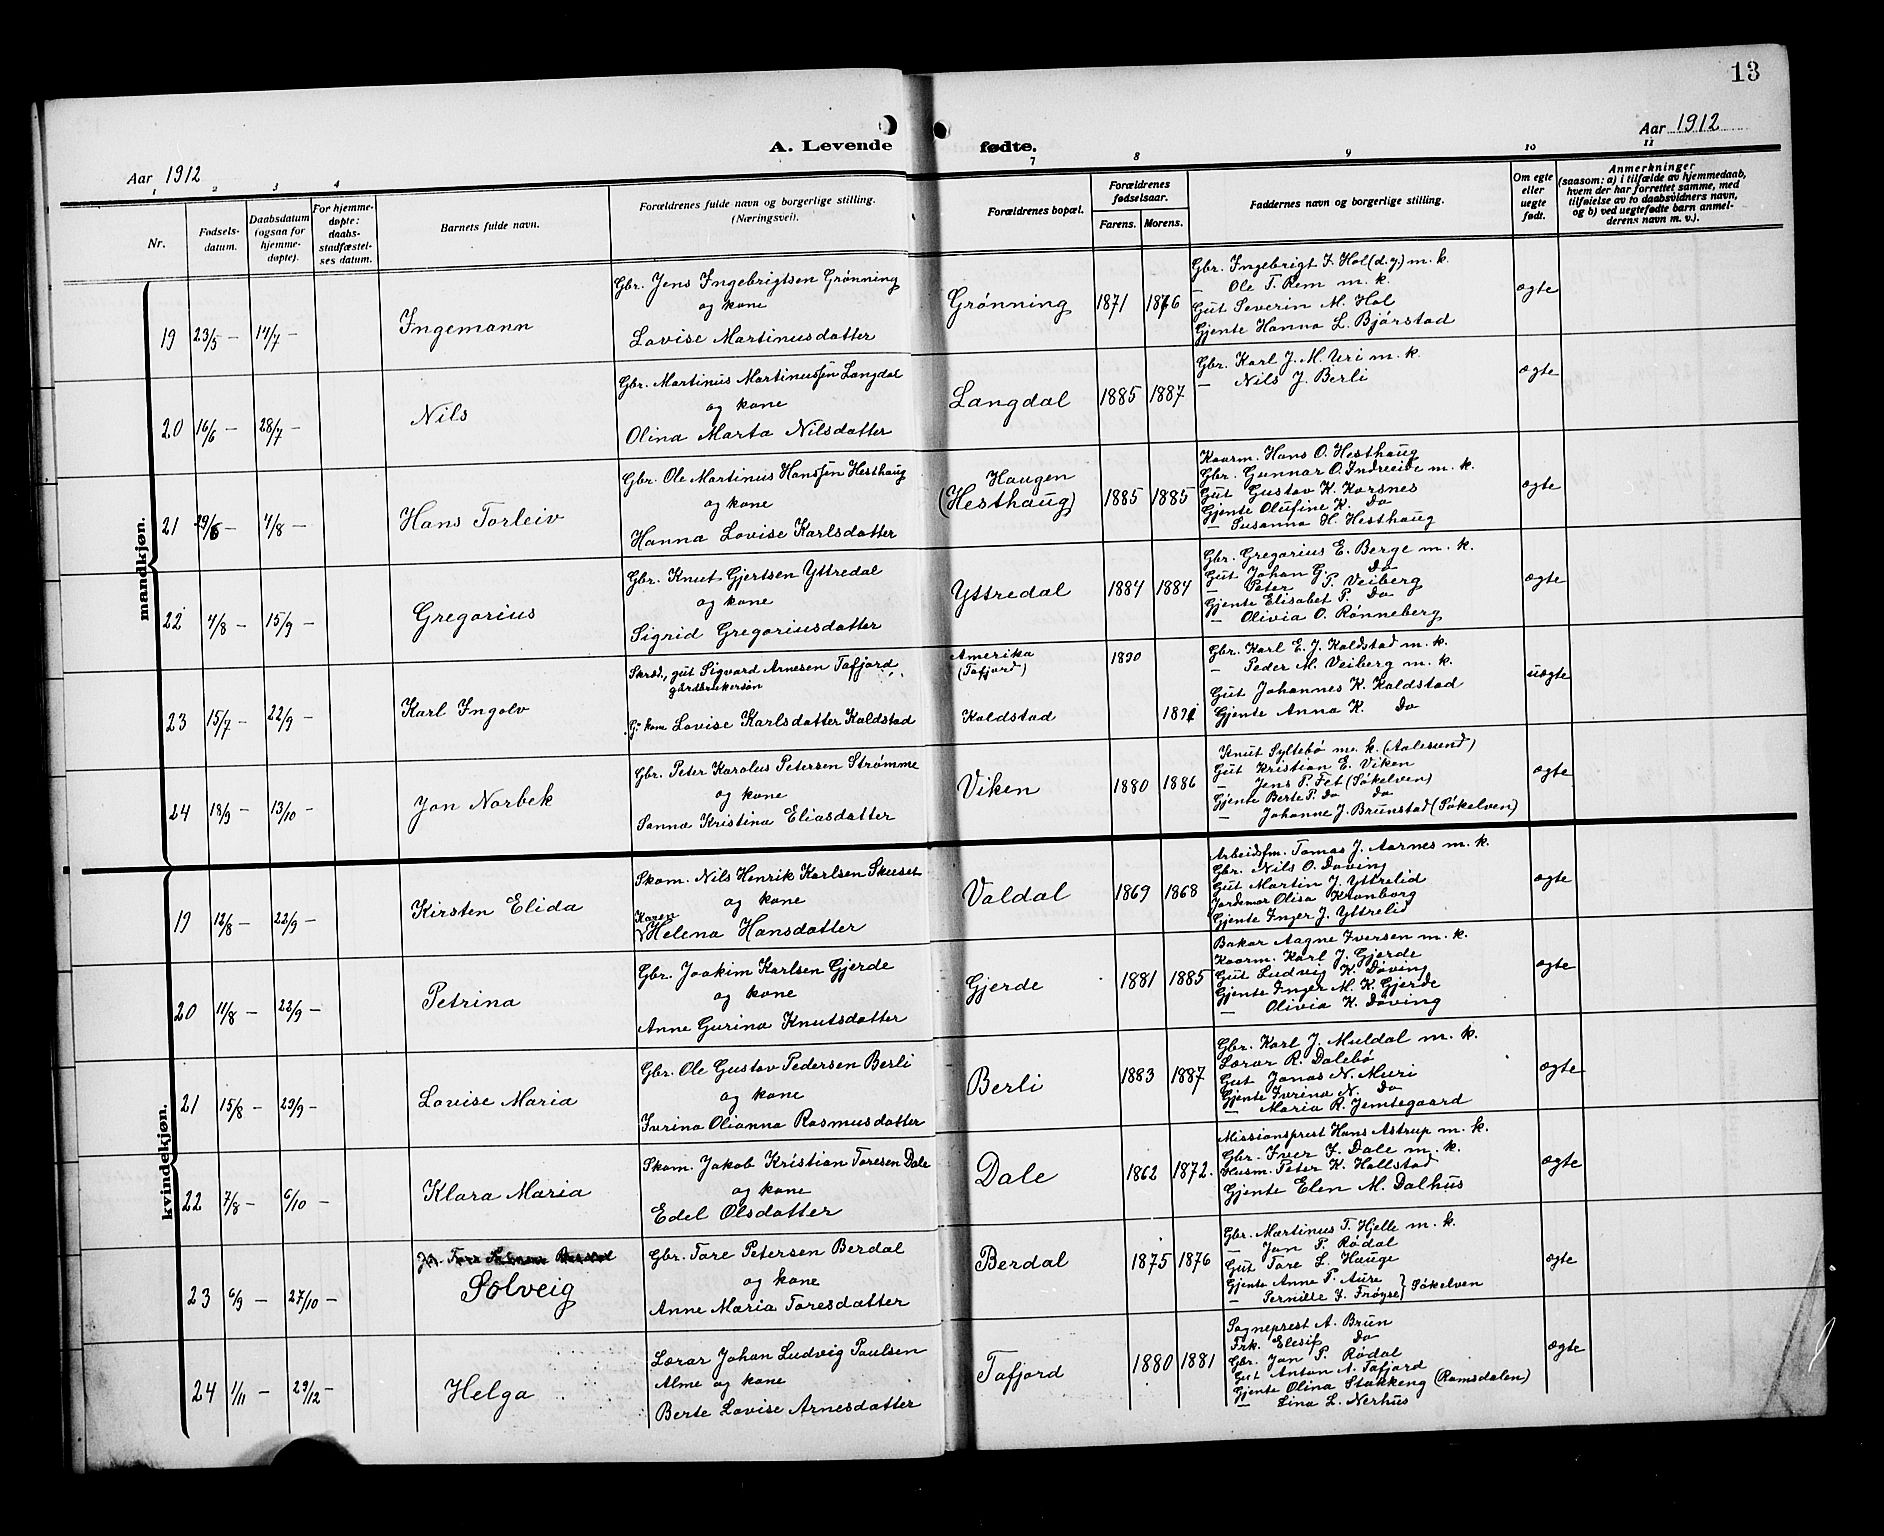 13
A. Levende fødte.
Aar 1912
Aar 1912
1 2 3 4 7 8 9 10 11
Nr.
Fødsels-
datum.
Daabsdatum
(ogsaa for
hjemme-
døpte).
For hjemme-
døpte:
daabs-
stadfæstel-
ses datum.
Barnets fulde navn.
Forældrenes fulde navn og borgerlige stilling.
(Næringsvei).
Forældrenes bopæl.
Forældrenes
fødselsaar.
Farens. Morens.
Faddernes navn og borgerlige stilling.
Om egte
eller
uegte
født.
Anmerkninger
(saasom: a) i tilfælde av hjemmedaab,
hvem der har forrettet samme, med
tilføielse av to daabsvidners navn,
og b) ved uegtefødte barn anmel-
derens navn m. v.).
mandkjøn.
19 23/5 — 14/7 — Ingemann
Gbr. Jens Ingebrigtsen Grønning
og kone
Lovise Martinusdatter
Grønning 1871 1876
Gbr. Ingebrigt I. Hol (d.y.) m. k.
— Ole T. Rem m. k.
Gut Severin M. Hol
Gjente Hanna L. Bjørstad
egte
20 16/6 — 28/7 — Nils
Gbr. Martinus Martinussen Langdal
og kone
Olina Marta Nilsdatter
Langdal 1885 1887
Gbr. Karl J. M. Uri m. k.
— Nils J. Berli
egte
21 29/6 — 4/8 — Hans Torleiv
Gbr. Ole Martinus Hanssen Hesthaug
og kone
Hanna Lovise Karlsdatter
Haugen
(Hesthaug) 1885 1885
Kaarm. Hans O. Hesthaug
Gbr. Gunnar O. Indreeide m. k.
Gut Gustav K. Korsnes
Gjente Olufine K. Do
— Susanna H. Hesthaug
egte
22 4/8 — 15/9 — Gregorius
Gbr. Knut Gjertsen Yttredal
og kone
Sigrid Gregoriusdatter
Yttredal 1884 1884
Gbr. Gregorius E. Berge m. k.
Gut Johan G. Do
— Peter P. Veiberg
Gjente Elisabet P. Do
— Olivia O. Rønneberg
egte
23 15/7 — 22/9 — Karl Ingolv
Skræd., gut Sigvard Arnesen Tafjord,
gårdbrukersøn
Lovise Karlsdatter Kaldstad
Amerika
(Tafjord) 1890
Kaldstad 1891
Gbr. Karl E. J. Kaldstad m. k.
— Peder M. Veiberg m. k.
Gut Johannes K. Kaldstad
Gjente Anna K. Do
uegte
24 18/9 — 13/10 — Jon Norbek
Gbr. Peter Karolus Petersen Strømme
og kone
Sanna Kristina Eliasdatter
Viken 1880 1886
Knut Syltebø m. k. (Aalesund)
Gut Kristian E. Viken
— Jens P. Fet (Søkelven)
Gjente Berte P. Do do
— Johanne J. Brunstad (Søkelven)
egte
kvindekjøn.
19 12/8 — 22/9 — Kirsten Elida
Skom. Nils Henrik Karlsen Skuset
og kone
Karen
Helena Hansdatter
Valdal 1869 1868
Arbeidsfm. Tomas J. Aarnes m. k.
Gbr. Nils O. Døving
Gut Martin J. Yttrelid
Jordmor Olisa Kronborg
Gjente Inger J. Yttrelid
egte
20 11/8 — 22/9 — Petrina
Gbr. Joakim Karlsen Gjerde
og kone
Anne Gurina Knutsdatter
Gjerde 1881 1885
Baker Aagne Iversen m. k.
Kaarm. Karl J. Gjerde
Gut Ludvig K. Døving
Gjente Inger M. K. Gjerde
— Olivia K. Døving
egte
21 15/8 — 29/9 — Lovise Maria
Gbr. Ole Gustav Pedersen Berli
og kone
Ivrina Olianna Rasmusdatter
Berli 1883 1887
Gbr. Karl J. Muldal m. k.
Lærer R. Dalebø
Gut Jonas N. Muri
Gjente Ivrina N. Do
— Maria R. Jemtegaard
egte
22 7/8 — 6/10 — Klara Maria
Skom. Jakob Kristian Toresen Dale
og kone
Edel Olsdatter
Dale 1862 1872.
Missionsprest Hans Astrup m. k.
Gbr. Iver I. Dale m. k.
Husm. Peter K. Hallstad
Gjente Elen M. Dalhus
egte
23 6/9 — 27/10 — Solveig
Gbr. Tore Petersen Berdal
og kone
Anne Maria Toresdatter
Berdal 1875 1876
Gbr. Martinus T. Hjelle m. k.
— Jon P. Rødal
Gut Tore L. Hauge
Gjente Anne P. Aure
— Pernille I. Frøyse } Søkelven
egte
24 1/11 — 29/12 — Helga
Lærer Johan Ludvig Paulsen
Alme og kone
Berte Lovise Arnesdatter
Tafjord 1880 1881
Sogneprest A. Brun
Frk. Elesif do
Gbr. Jon P. Rødal
Gut Anton A. Tafjord
Gjente Olina Stokkeng (Romsdalen)
— Lina L. Nerhus
egte